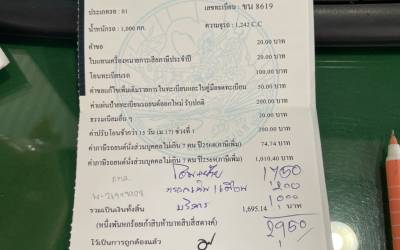 ประเภทรถ : 01 เลขทะเบียน : ขน 8619
น้ำหนักรถ : 1,000 กก. ความจุรถ : 1,242 C.C
ค่าขอ 20.00 บาท
ใบแทนเครื่องหมายการเสียภาษีประจำปี 20.00 บาท
โอนทะเบียนรถ 100.00 บาท
ค่าขอแก้ไขเพิ่มเติมรายการในทะเบียนและใบคู่มือจดทะเบียน 50.00 บาท
ค่าแผ่นป้ายทะเบียนรถยนต์ออกใหม่ รับปกติ 200.00 บาท
ธรรมเนียมอื่น ๆ 20.00 บาท
ค่าปรับโอนช้ากว่า 15 วัน (ม.17) ช่วงที่ 1 200.00 บาท
ค่าภาษีรถยนต์นั่งส่วนบุคคลไม่เกิน 7 คน (ภาษีเพิ่ม) 74.74 บาท
ค่าภาษีรถยนต์นั่งส่วนบุคคลไม่เกิน 7 คน 1,010.40 บาท
โอนย้าย 1,750
200
บริการ 1,000
รวมเป็นเงินทั้งสิ้น 1,695.14 บาท
(หนึ่งพันหกร้อยเก้าสิบห้าบาทสิบสี่สตางค์) 2,950
ไว้เป็นการถูกต้องแล้ว